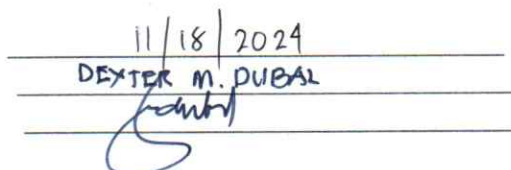 11/18/2024
DEXTER M. DUBAL